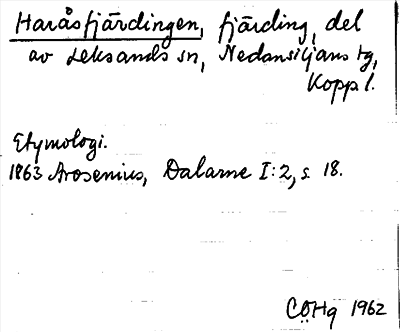 Haråsfjärdingen, fjärding, del
av Leksands sn, Nedansiljans tg,
Kopp l.
Etymologi.
1863 Arosenius, Dalarne I:2, s 18.
CÖHg 1962